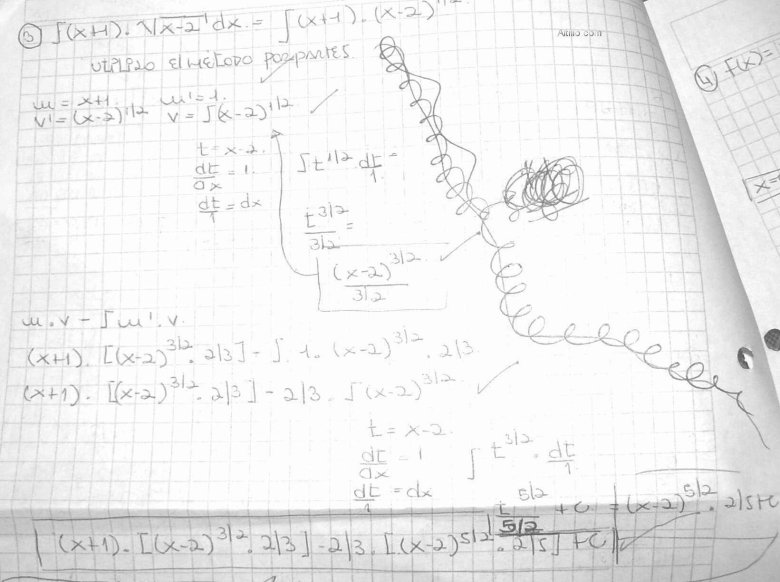 ③ ∫(x+1)·√x-2 dx = ∫(x+1)·(x-2)^1/2
utilizo el método por partes.
u = x+1. u' = 1.
v' = (x-2)^1/2 v = ∫(x-2)^1/2
t = x-2.
dt/dx = 1.
dt/1 = dx
∫t^1/2 dt/1 =
t^3/2 / 3/2 =
(x-2)^3/2 / 3/2
u·v - ∫u'·v.
(x+1)·[(x-2)^3/2 · 2/3] - ∫1·(x-2)^3/2 · 2/3
(x+1)·[(x-2)^3/2 · 2/3] - 2/3·∫(x-2)^3/2
t = x-2
dt/dx = 1
dt/1 = dx
∫t^3/2 · dt/1
t^5/2 / 5/2 + c = (x-2)^5/2 · 2/5+c
(x+1)·[(x-2)^3/2 · 2/3] - 2/3·[(x-2)^5/2 · 2/5] + c
④ f(x)=
x=